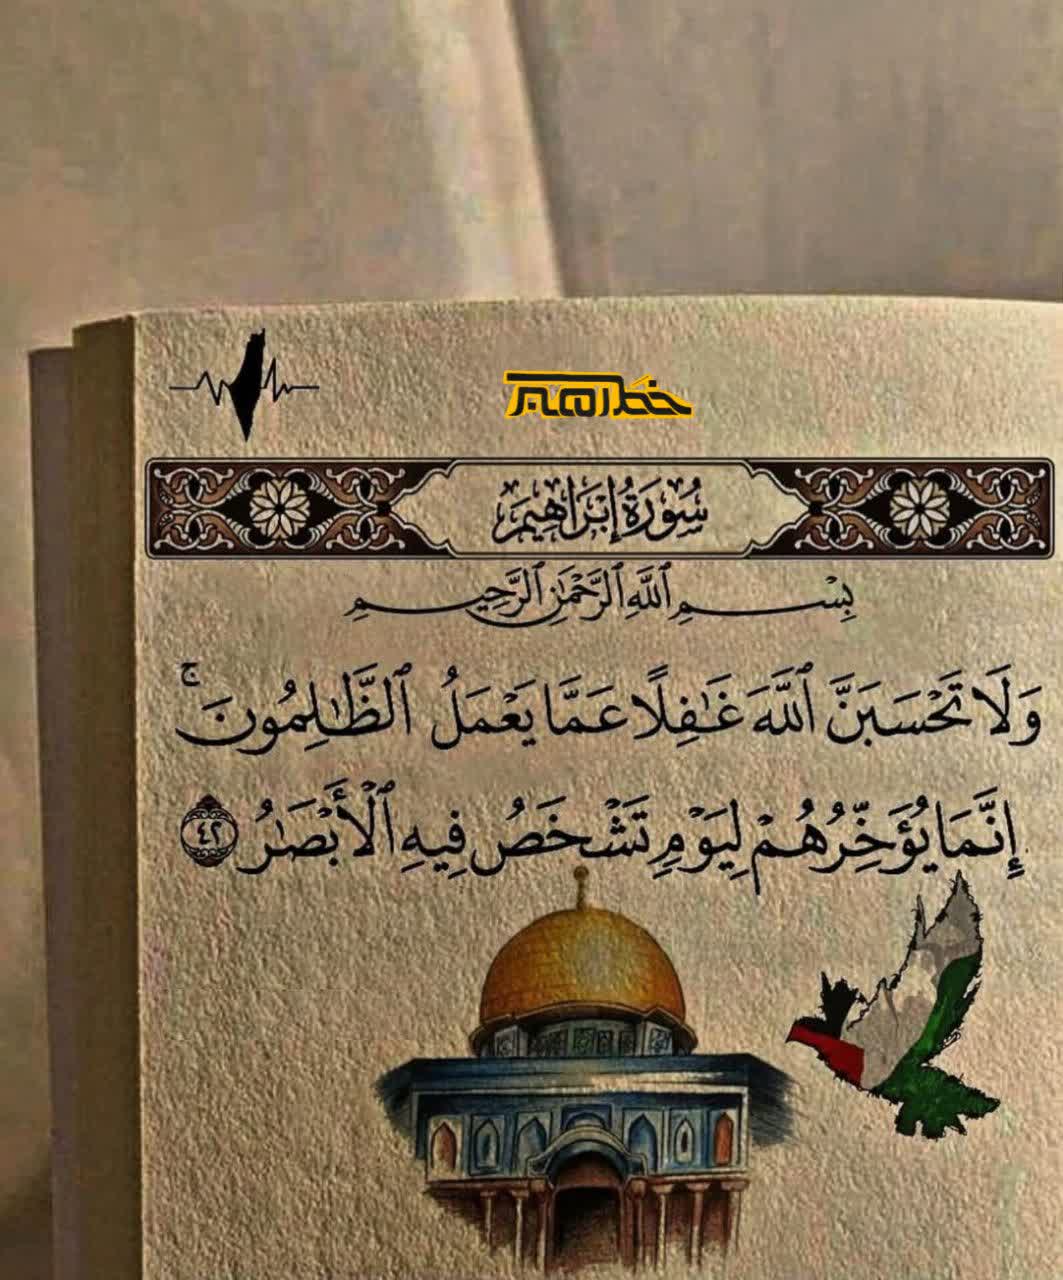 خط رهبر
سُورَةُ إِبْرَاهِيمَ
بِسْمِ ٱللَّهِ ٱلرَّحْمَٰنِ ٱلرَّحِيمِ
وَلَا تَحْسَبَنَّ ٱللَّهَ غَٰفِلًا عَمَّا يَعْمَلُ ٱلظَّٰلِمُونَ ۚ
إِنَّمَا يُؤَخِّرُهُمْ لِيَوْمٍ تَشْخَصُ فِيهِ ٱلْأَبْصَٰرُ ٤٢